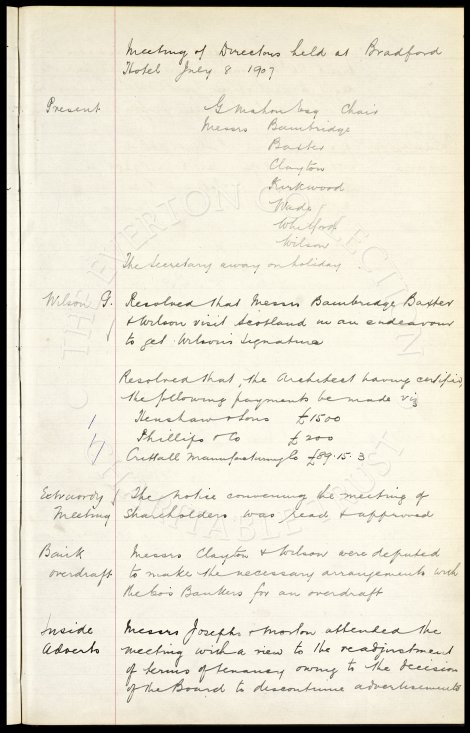 Meeting of Directors held at Bradford
Hotel July 8 1907
Present G Mahon Esq Chair
Messrs Bainbridge
Baxter
Clayton
Kirkwood
Wade
Whitford
Wilson
The Secretary away on holiday
Wilson G. Resolved that Messrs Bainbridge Baxter
& Wilson visit Scotland in an endeavour
to get Wilson's signature
Resolved that, the Architect having certified
the following payments be made viz
Henshaw & Sons £1500
Phillips & Co £200
Crittall Manufacturing Co £89.15.3
Extraordy The notice convening the meeting of
Meeting Shareholders was read & approved
Bank Messrs Clayton & Wilson were deputed
overdraft to make the necessary arrangements with
the Co's Bankers for an overdraft
Inside Messrs Josephs & Morton attended the
Adverts meeting with a view to the readjustment
of terms of tenancy owing to the decision
of the Board to discontinue advertisements
THE EVERTON COLLECTION
CHARITABLE TRUST